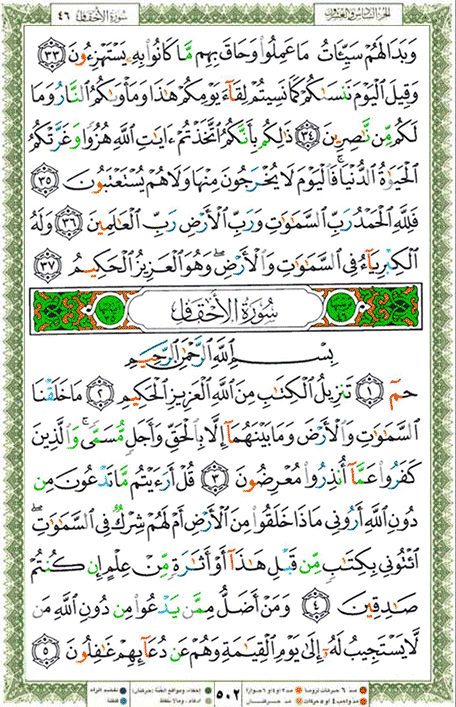 سُورَةُ الأَحْقَافِ ٤٦
الجزء السادس والعشرون
وَبَدَا لَهُمْ سَيِّئَاتُ مَا عَمِلُوا۟ وَحَاقَ بِهِم مَّا كَانُوا۟ بِهِۦ يَسْتَهْزِءُونَ ٣٣
وَقِيلَ ٱلْيَوْمَ نَنسَىٰكُمْ كَمَا نَسِيتُمْ لِقَآءَ يَوْمِكُمْ هَٰذَا وَمَأْوَىٰكُمُ ٱلنَّارُ وَمَا
لَكُم مِّن نَّٰصِرِينَ ٣٤ ذَٰلِكُم بِأَنَّكُمُ ٱتَّخَذْتُمْ ءَايَٰتِ ٱللَّهِ هُزُوًا وَغَرَّتْكُمُ
ٱلْحَيَوٰةُ ٱلدُّنْيَا ۚ فَٱلْيَوْمَ لَا يُخْرَجُونَ مِنْهَا وَلَا هُمْ يُسْتَعْتَبُونَ ٣٥
فَلِلَّهِ ٱلْحَمْدُ رَبِّ ٱلسَّمَٰوَٰتِ وَرَبِّ ٱلْأَرْضِ رَبِّ ٱلْعَٰلَمِينَ ٣٦ وَلَهُ
ٱلْكِبْرِيَآءُ فِى ٱلسَّمَٰوَٰتِ وَٱلْأَرْضِ ۖ وَهُوَ ٱلْعَزِيزُ ٱلْحَكِيمُ ٣٧
سُورَةُ الأَحْقَافِ
بِسْمِ ٱللَّهِ ٱلرَّحْمَٰنِ ٱلرَّحِيمِ
حمٓ ١ تَنزِيلُ ٱلْكِتَٰبِ مِنَ ٱللَّهِ ٱلْعَزِيزِ ٱلْحَكِيمِ ٢ مَا خَلَقْنَا
ٱلسَّمَٰوَٰتِ وَٱلْأَرْضَ وَمَا بَيْنَهُمَآ إِلَّا بِٱلْحَقِّ وَأَجَلٍ مُّسَمًّى ۚ وَٱلَّذِينَ
كَفَرُوا۟ عَمَّآ أُنذِرُوا۟ مُعْرِضُونَ ٣ قُلْ أَرَءَيْتُم مَّا تَدْعُونَ مِن
دُونِ ٱللَّهِ أَرُونِى مَاذَا خَلَقُوا۟ مِنَ ٱلْأَرْضِ أَمْ لَهُمْ شِرْكٌ فِى ٱلسَّمَٰوَٰتِ ۖ
ٱئْتُونِى بِكِتَٰبٍ مِّن قَبْلِ هَٰذَآ أَوْ أَثَٰرَةٍ مِّنْ عِلْمٍ إِن كُنتُمْ
صَٰدِقِينَ ٤ وَمَنْ أَضَلُّ مِمَّن يَدْعُوا۟ مِن دُونِ ٱللَّهِ مَن
لَّا يَسْتَجِيبُ لَهُۥٓ إِلَىٰ يَوْمِ ٱلْقِيَٰمَةِ وَهُمْ عَن دُعَآئِهِمْ غَٰفِلُونَ ٥
٥٠٢